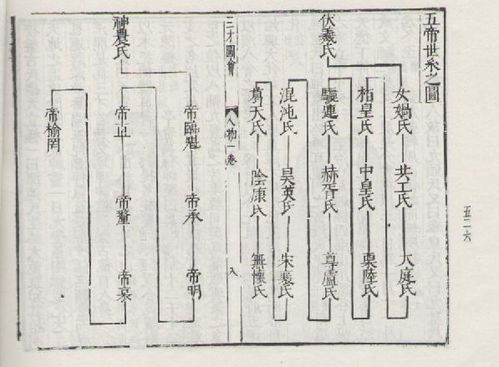 五帝世系之圖
伏羲氏
女媧氏
共工氏
大庭氏
柏皇氏
中皇氏
栗陸氏
驪連氏
赫胥氏
尊盧氏
混沌氏
昊英氏
朱襄氏
葛天氏
陰康氏
無懷氏
三才圖會
人物一卷
八
神農氏
帝臨魁
帝承
帝明
帝直
帝釐
帝哀
帝榆罔
五二六